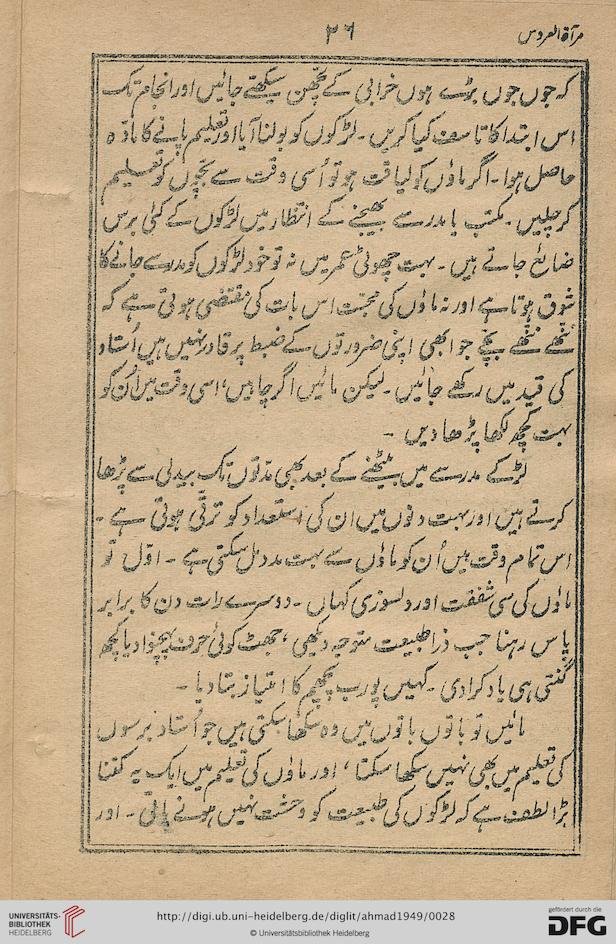 مرآۃ العروس
۳۶
کہ جوں جوں بڑے ہوں خرابی کے لچھن سیکھتے جائیں اور انجام تک
اس ابتدا کا تاسف کیا کریں۔ لڑکوں کو بولنا آیا اور تعلیم پانے کا مادّہ
حاصل ہوا۔ اگر ماؤں کو لیاقت ہو تو اُسی وقت سے بچّوں کو تعلیم
کر چلیں۔ مکتب یا مدرسے بھیجنے کے انتظار میں لڑکوں کے کئی برس
ضائع جاتے ہیں۔ بہت چھوٹی عمر میں نہ تو خود لڑکوں کو مدرسے جانے کا
شوق ہوتا ہے اور نہ ماؤں کی محبّت اس بات کی مقتضی ہوتی ہے کہ
ننھے ننھے بچّے جو ابھی اپنی ضرورتوں کے ضبط پر قادر نہیں ہیں اُستاد
کی قید میں رکھے جائیں۔ لیکن مائیں اگر چاہیں، اسی وقت میں اُن کو
بہت کچھ لکھا پڑھا دیں۔
لڑکے مدرسے میں بیٹھنے کے بعد بھی مدّتوں تک بیدلی سے پڑھا
کرتے ہیں اور بہت دنوں میں ان کی استعداد کو ترقّی ہوتی ہے۔
اس تمام وقت میں اُن کو ماؤں سے بہت مدد مل سکتی ہے۔ اوّل تو
ماؤں کی سی شفقت اور دلسوزی کہاں۔ دوسرے رات دن کا برابر
پاس رہنا جب ذرا طبیعت متوجہ دیکھی، جھٹ کوئی حرف پہچنوا دیا کچھ
گنتی ہی یاد کرا دی۔ کہیں پورب پچھم کا امتیاز بتا دیا۔
مائیں تو باتوں باتوں میں وہ سکھا سکتی ہیں جو اُستاد برسوں
کی تعلیم میں بھی نہیں سکھا سکتا، اور ماؤں کی تعلیم میں ایک یہ کتنا
بڑا لطف ہے کہ لڑکوں کی طبیعت کو وحشت نہیں ہونے پاتی۔ اور
UNIVERSITÄTS-
BIBLIOTHEK
HEIDELBERG
http://digi.ub.uni-heidelberg.de/diglit/ahmad1949/0028
© Universitätsbibliothek Heidelberg
gefördert durch die
DFG